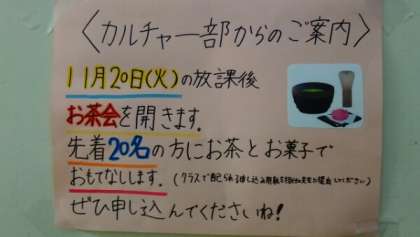 〈カルチャー部からのご案内〉
11月20日(火)の放課後
お茶会を開きます。
先着20名の方にお茶とお菓子で
おもてなしします。(クラスで配られる申し込み用紙を
ぜひ申し込んでくださいね!